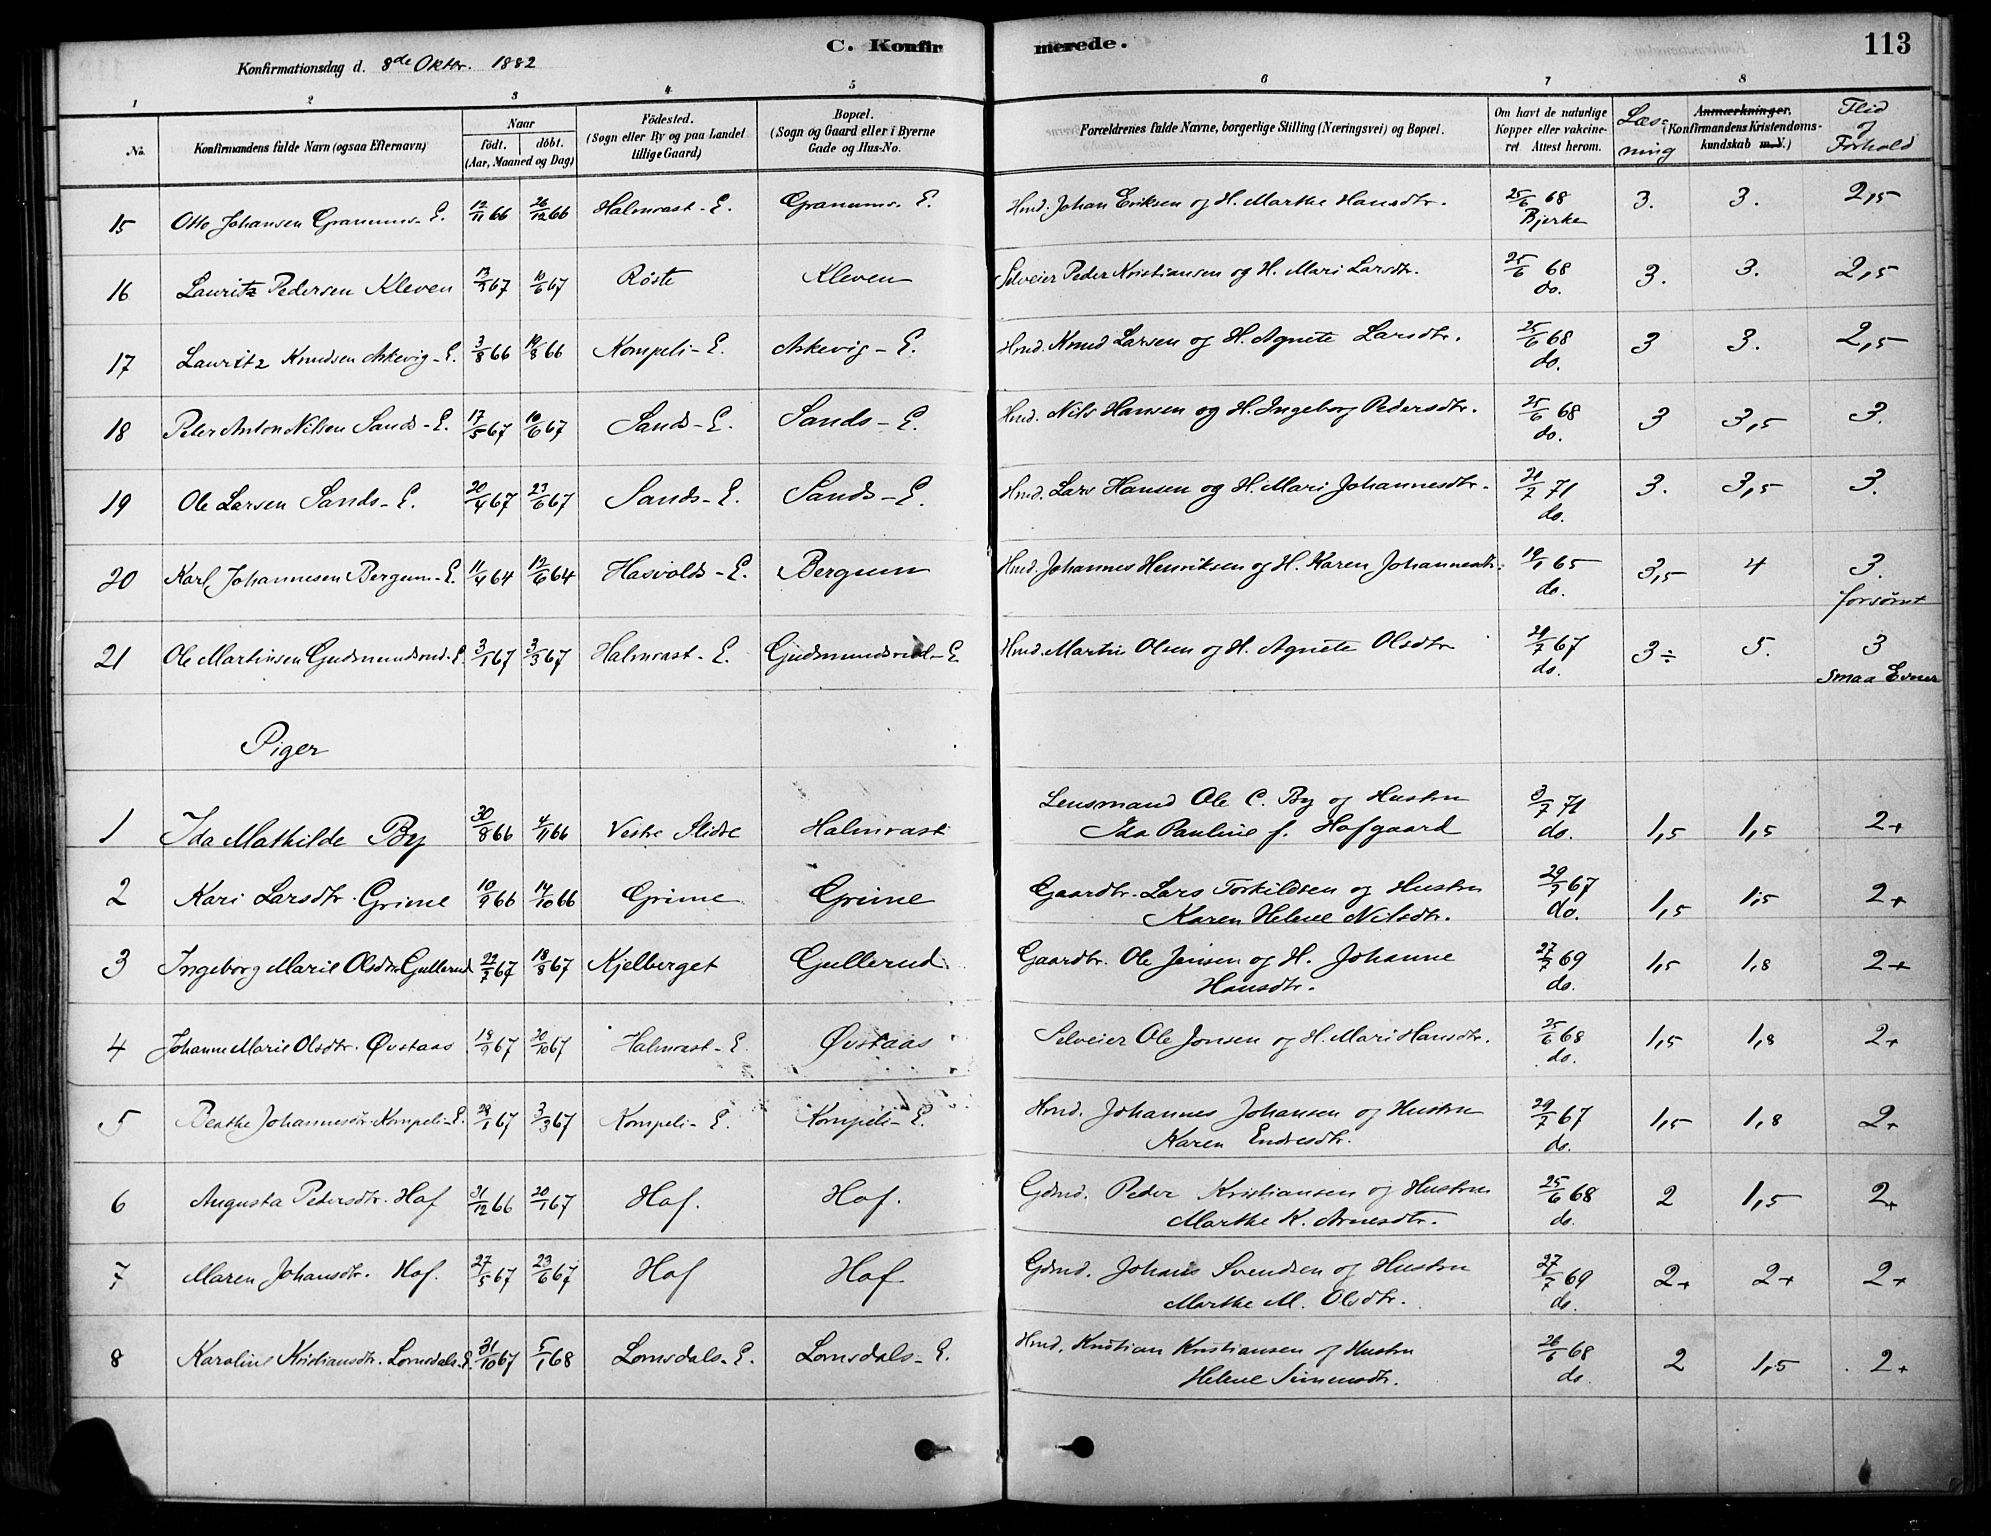 C. Konfirmerede. 113
Konfirmationsdag d. 8de Oktbr. 1882
1 2 3 4 5 6 7 8
No. Konfirmandens fulde Navn (ogsaa Efternavn) Naar født. døbt. (Aar, Maaned og Dag) Fødested. (Sogn eller By og paa Landet tillige Gaard) Bopæl. (Sogn og Gaard eller i Byerne Gade og Hus-No. Forældrenes fulde Navne, borgerlige Stilling (Næringsvei) og Bopæl. Om havt de naturlige Kopper eller vakcineret. Attest herom. Læsning Anmærkninger. (Konfirmandens Kristendomskundskab m.V.) Flid og Forhold
15 Otto Johansen Granums-E. 12/11 66 26/12 66 Halmrast-E. Granums-E. Hmd. Johan Eriksen og H. Marthe Hansdtr. 25/6 68 Bjerke 3. 3. 2,5
16 Lauritz Pedersen Kleven 13/3 67 10/6 67 Røste Kleven Selveier Peder Kristiansen og H. Mari Larsdtr. 25/6 68 do. 3. 3. 2,5
17 Lauritz Knudsen Askevig-E. 3/8 66 19/8 66 Kompeli-E. Askevig-E. Hmd. Knud Larsen og H. Agnete Larsdtr. 25/6 68 do. 3 3. 2,5
18 Peter Anton Nilsen Sands-E. 17/5 67 10/6 67 Sands-E. Sands-E. Hmd. Nils Hansen og H. Ingeborg Pedersdtr. 25/6 68 do. 3 3,5 3.
19 Ole Larsen Sands-E. 20/4 67 23/6 67 Sands-E. Sands-E. Hmd. Lars Hansen og H. Mari Johannesdtr. 21/7 71 do. 3. 3,5 3.
20 Karl Johannesen Bergum-E. 11/4 64 12/6 64 Hasvolds-E. Bergum Hmd. Johannes Henriksen og H. Karen Johannesdtr. 19/1 65 do. 3,5 4 3. forsømt
21 Ole Martinsen Gudmundsrud-E. 3/1 67 3/3 67 Halmrast-E. Gudmundsrud-E. Hmd. Martin Olsen og H. Agnete Olsdtr 29/7 67 do. 3÷ 5. 3 smaa Evner
Piger
1 Ida Mathilde By 30/8 66 4/11 66 Vestre Slidre Halmrast Lensmand Ole C. By og Hustru Ida Pauline f. Hofgaard 3/7 71 do. 1,5 1,5 2+
2 Kari Larsdtr. Grime 10/9 66 14/10 66 Grime Grime Gaardbr. Lars Torkildsen og Hustru Karen Helene Nilsdtr. 29/7 67 do. 1,5 1,5 2+
3 Ingeborg Marie Olsdtr Gullerud 22/7 67 18/8 67 Kjelberget Gullerud Gaardbr. Ole Jensen og H. Johanne Hansdtr. 27/7 69 do. 1,5 1,8 2+
4 Johanne Marie Olsdtr. Øvstaas 18/9 67 20/10 67 Halmrast-E. Øvstaas Selveier Ole Jonsen og H. Mari Hansdtr. 25/6 68 do. 1,5 1,8 2+
5 Berthe Johannesdtr. Kompeli-E. 28/1 67 3/3 67 Kompeli-E. Kompeli-E. Hmd. Johannes Johansen og Hustru Karen Endresdtr. 29/7 67 do. 1,5 1,8 2+
6 Augusta Pedersdtr. Hof 31/12 66 20/1 67 Hof. Hof. Gdmd. Peder Kristiansen og Hustru Marthe K. Arnesdtr. 25/6 68 do. 2 1,5 2+
7 Maren Johansdtr. Hof. 27/5 67 23/6 67 Hof Hof Gdmd. Johans Svendsen og Hustru Marthe M. Olsdtr. 27/7 69 do. 2+ 2+ 2+
8 Karoline Kristiansdtr. Lomsdals-E. 31/10 67 5/1 68 Lomsdals-E. Lomsdals-E. Hmd. Kristian Kristiansen og Hustru Helene Simensdtr. 26/6 68 do 2 1,5 2+